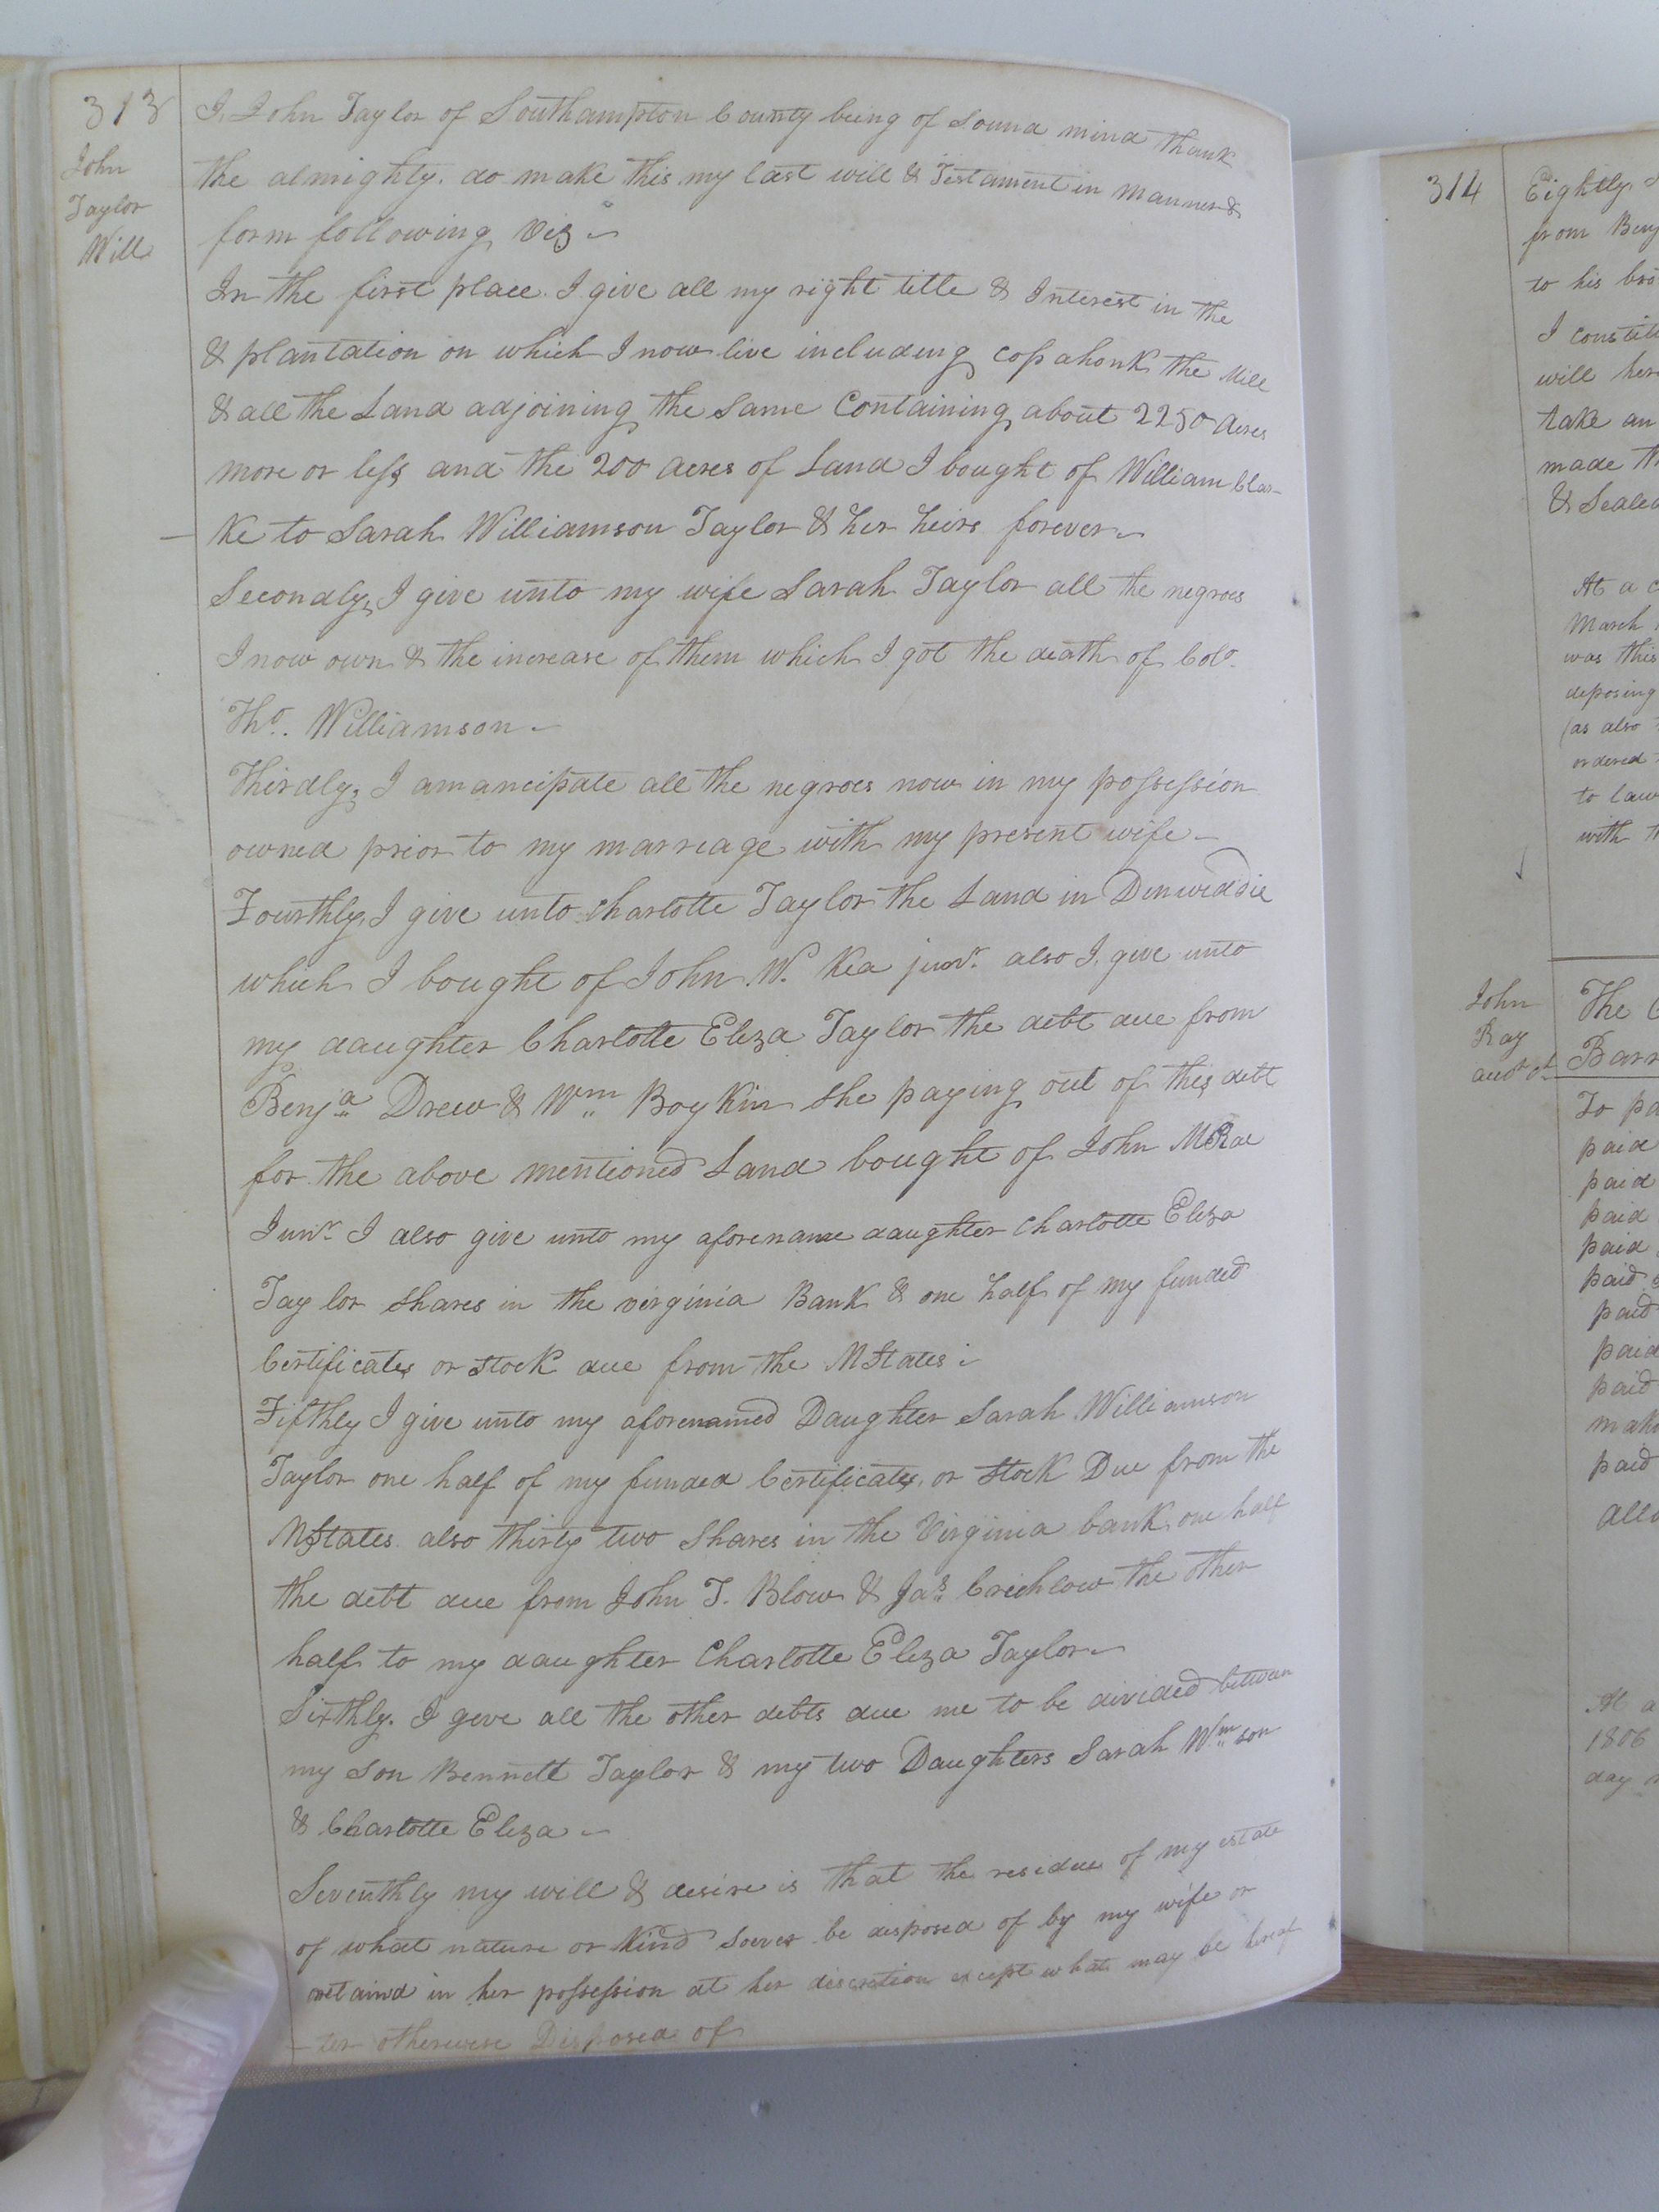 313
John
Taylor
Will
I, John Taylor of Southampton County being of sound mind thank
the almighty. do make this my last will & Testament in manner &
form following, Viz
In the first place. I give all my right title & Interest in the
& plantation on which I now live including copahonk the Mill
& all the Land adjoining the same Containing about 2250 acres
more or less and the 200 acres of Land I bought of William Clar-
ke to Sarah Williamson Taylor & her heirs forever
Secondly, I give unto my wife Sarah Taylor all the negroes
I now own & the increase of them which I got the death of Colo.
Tho. Williamson
Thirdly, I amancipate all the negroes now in my possession
owned prior to my marreage with my present wife
Fourthly, I give unto Charlotte Taylor the Land in Denwiddie
which I bought of John W. Rea junr. also I give unto
my daughter Charlotte Eliza Taylor the debt due from
Benja Drew & Wm Boykin she paying out of this debt
for the above mentioned Land bought of John McRae
Junr. I also give unto my aforename daughter Charlotte Eliza
Taylor shares in the virginia Bank & one half of my funded
Certificates or stock due from the States
Fifthly I give unto my aforenamed Daughter Sarah Williamson
Taylor one half of my funded Certificates or Stock Due from the
States also thirty two shares in the Virginia bank, one half
the debt due from John T. Blow & Jas. Crichlow the other
half to my daughter Charlotte Eliza Taylor
Sixthly. I geve all the other debts due me to be divided between
my son Bennett Taylor & my two Daughters Sarah Wmson
& Charlotte Eliza
Seventhly my will & desire is that the residue of my estate
of what nature or kind soever be disposed of by my wife or
retaind in her possession at her discretion except what may be hereaf
ter otherwise Disposed of
314
Eightly,
from Benj
to his bro
I constit
will her
take an
made th
& Sealed
At a c
March
was this
deposing
(as also
ordered
to law
with
John
Ray
The
Barr
To pa
paid
paid
paid
paid
paid
paid
paid
paid
paid
At a
1806
day